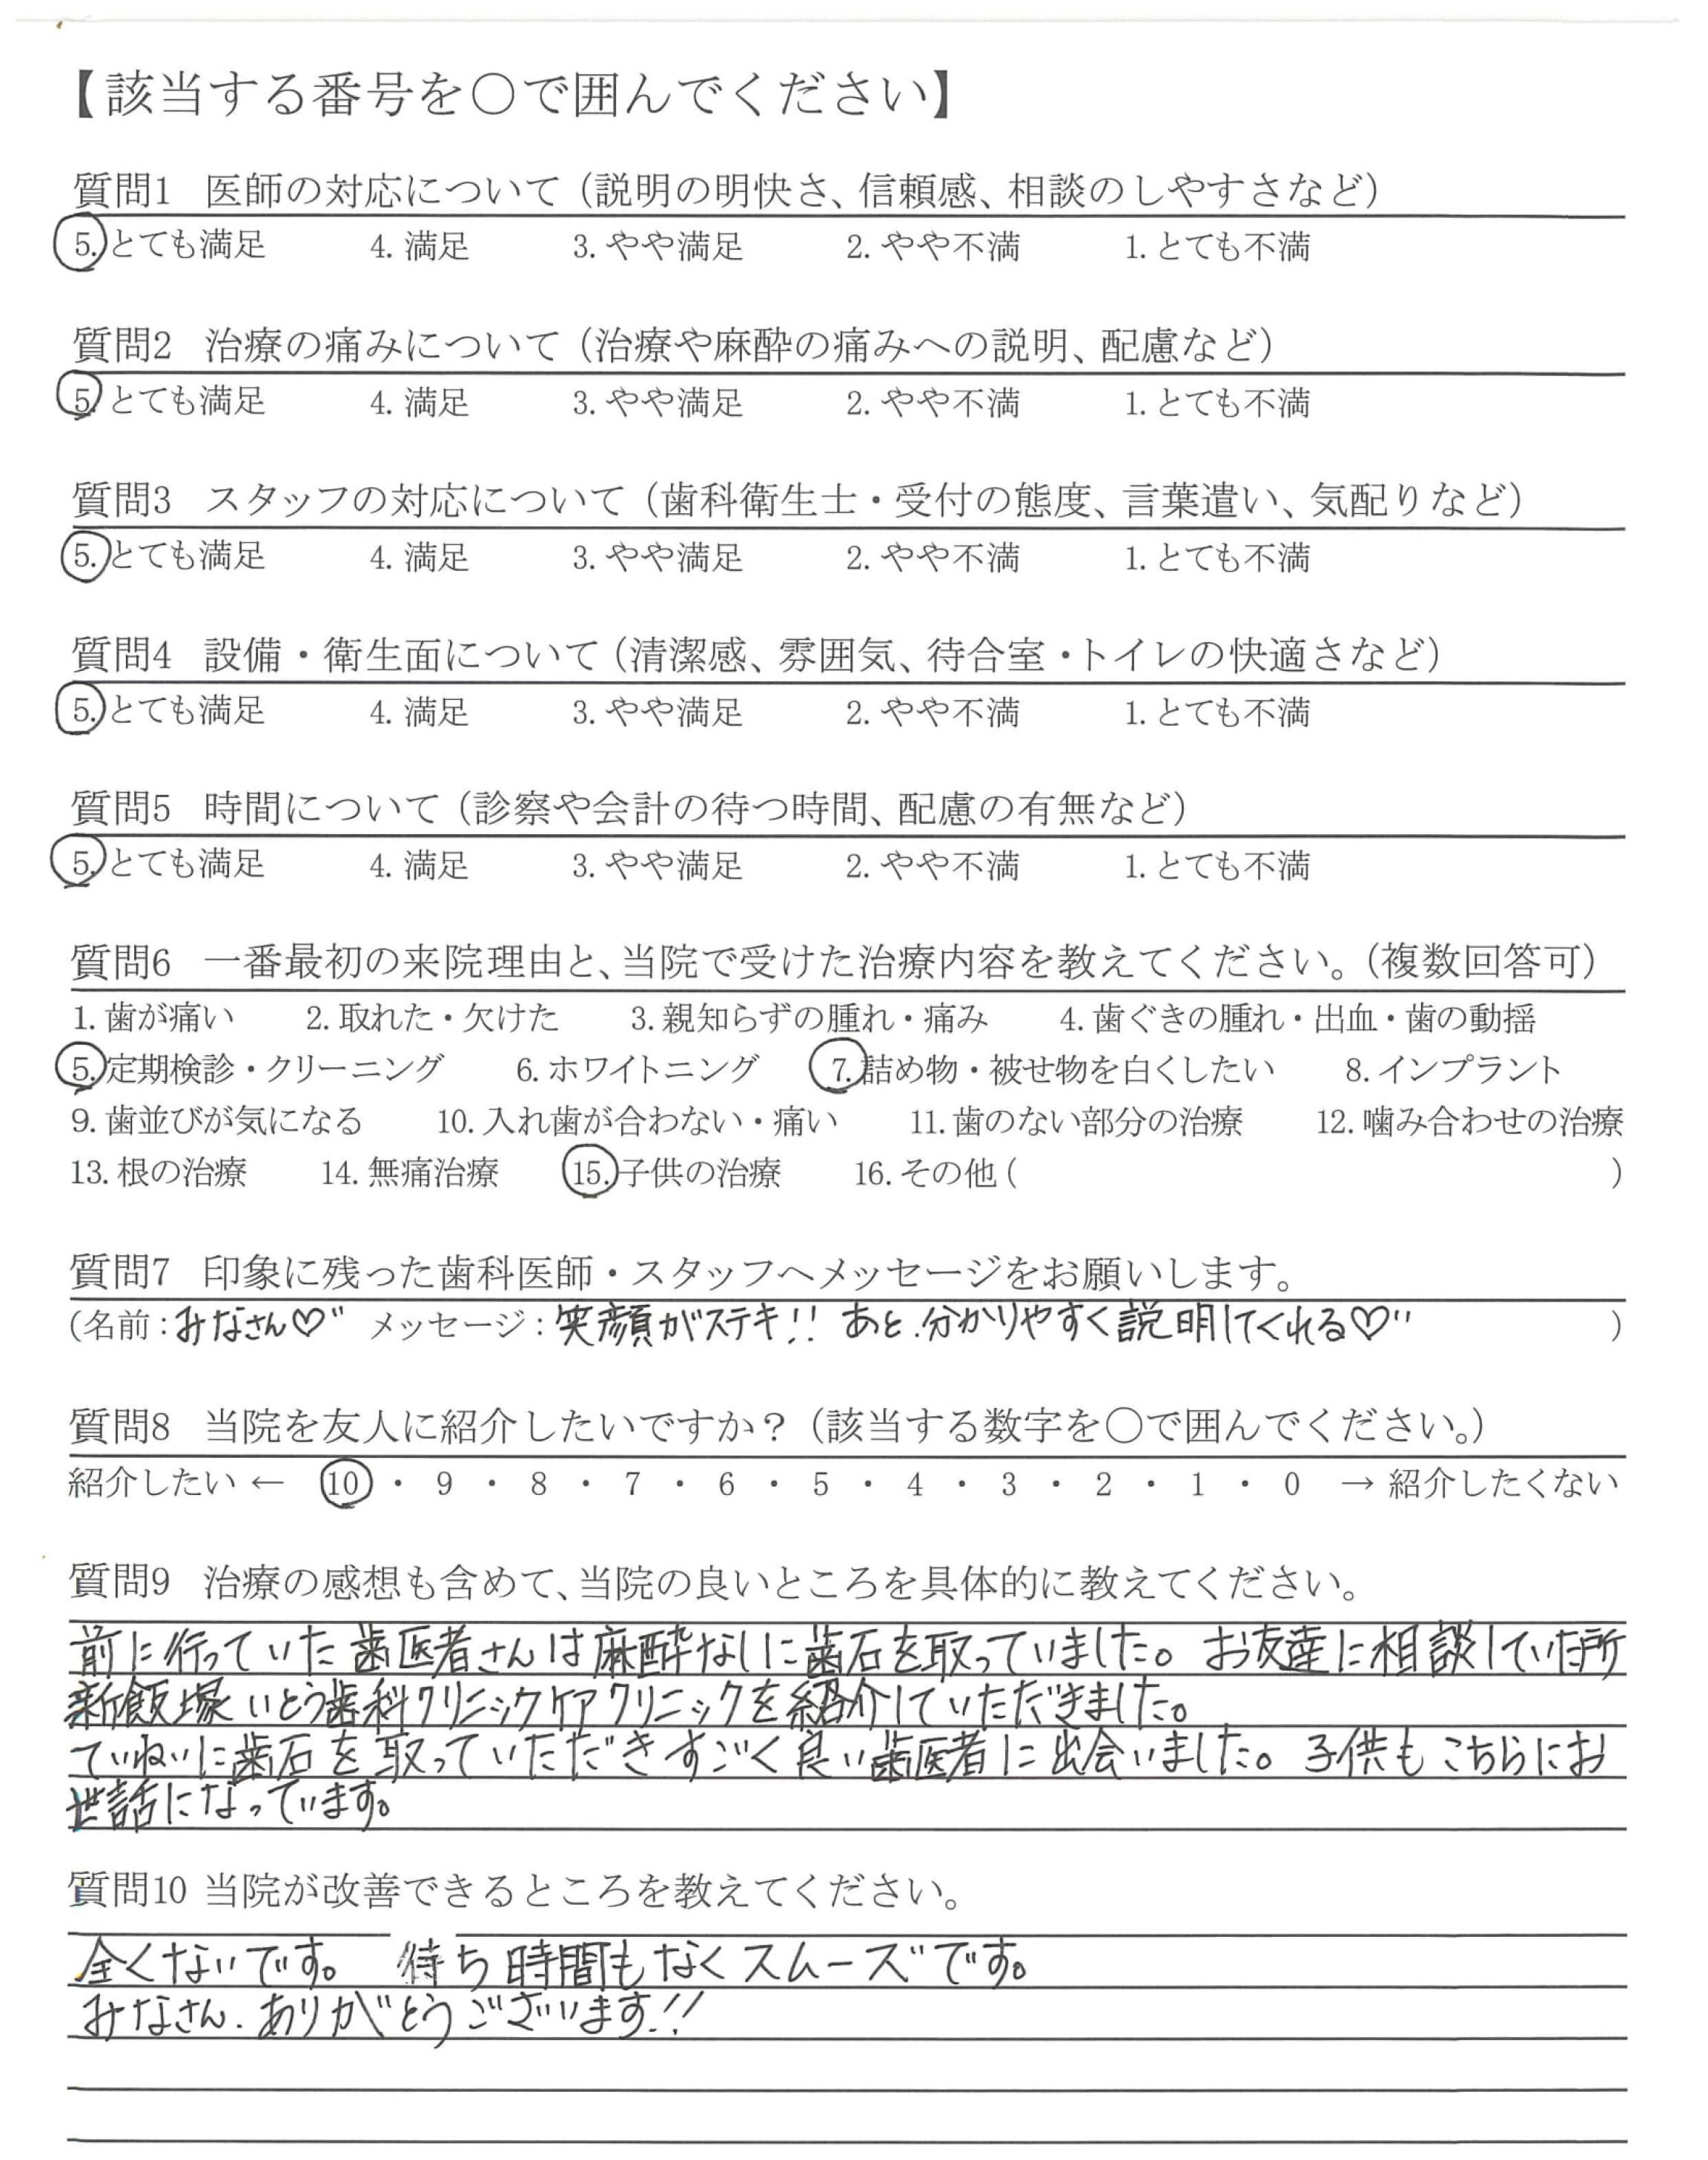 【該当する番号を○で囲んでください】
質問1 医師の対応について（説明の明快さ、信頼感、相談のしやすさなど）
5. とても満足 4. 満足 3. やや満足 2. やや不満 1. とても不満
質問2 治療の痛みについて（治療や麻酔の痛みへの説明、配慮など）
5. とても満足 4. 満足 3. やや満足 2. やや不満 1. とても不満
質問3 スタッフの対応について（歯科衛生士・受付の態度、言葉遣い、気配りなど）
5. とても満足 4. 満足 3. やや満足 2. やや不満 1. とても不満
質問4 設備・衛生面について（清潔感、雰囲気、待合室・トイレの快適さなど）
5. とても満足 4. 満足 3. やや満足 2. やや不満 1. とても不満
質問5 時間について（診察や会計の待つ時間、配慮の有無など）
5. とても満足 4. 満足 3. やや満足 2. やや不満 1. とても不満
質問6 一番最初の来院理由と、当院で受けた治療内容を教えてください。（複数回答可）
1. 歯が痛い 2. 取れた・欠けた 3. 親知らずの腫れ・痛み 4. 歯ぐきの腫れ・出血・歯の動揺
5. 定期検診・クリーニング 6. ホワイトニング 7. 詰め物・被せ物を白くしたい 8. インプラント
9. 歯並びが気になる 10. 入れ歯が合わない・痛い 11. 歯のない部分の治療 12. 噛み合わせの治療
13. 根の治療 14. 無痛治療 15. 子供の治療 16. その他（ ）
質問7 印象に残った歯科医師・スタッフへメッセージをお願いします。
（名前：みなさん♡〃 メッセージ：笑顔がステキ！！ あと、分かりやすく説明してくれる♡〃 ）
質問8 当院を友人に紹介したいですか？（該当する数字を○で囲んでください。）
紹介したい ← 10 ・ 9 ・ 8 ・ 7 ・ 6 ・ 5 ・ 4 ・ 3 ・ 2 ・ 1 ・ 0 → 紹介したくない
質問9 治療の感想も含めて、当院の良いところを具体的に教えてください。
前に行っていた歯医者さんは麻酔なしに歯石を取っていました。お友達に相談していた所
新飯塚いとう歯科クリニックケアクリニックを紹介していただきました。
ていねいに歯石を取っていただきすごく良い歯医者に出会いました。子供もこちらにお
世話になっています。
質問10 当院が改善できるところを教えてください。
全くないです。 待ち時間もなくスムーズです。
みなさん、ありがとうございます！！